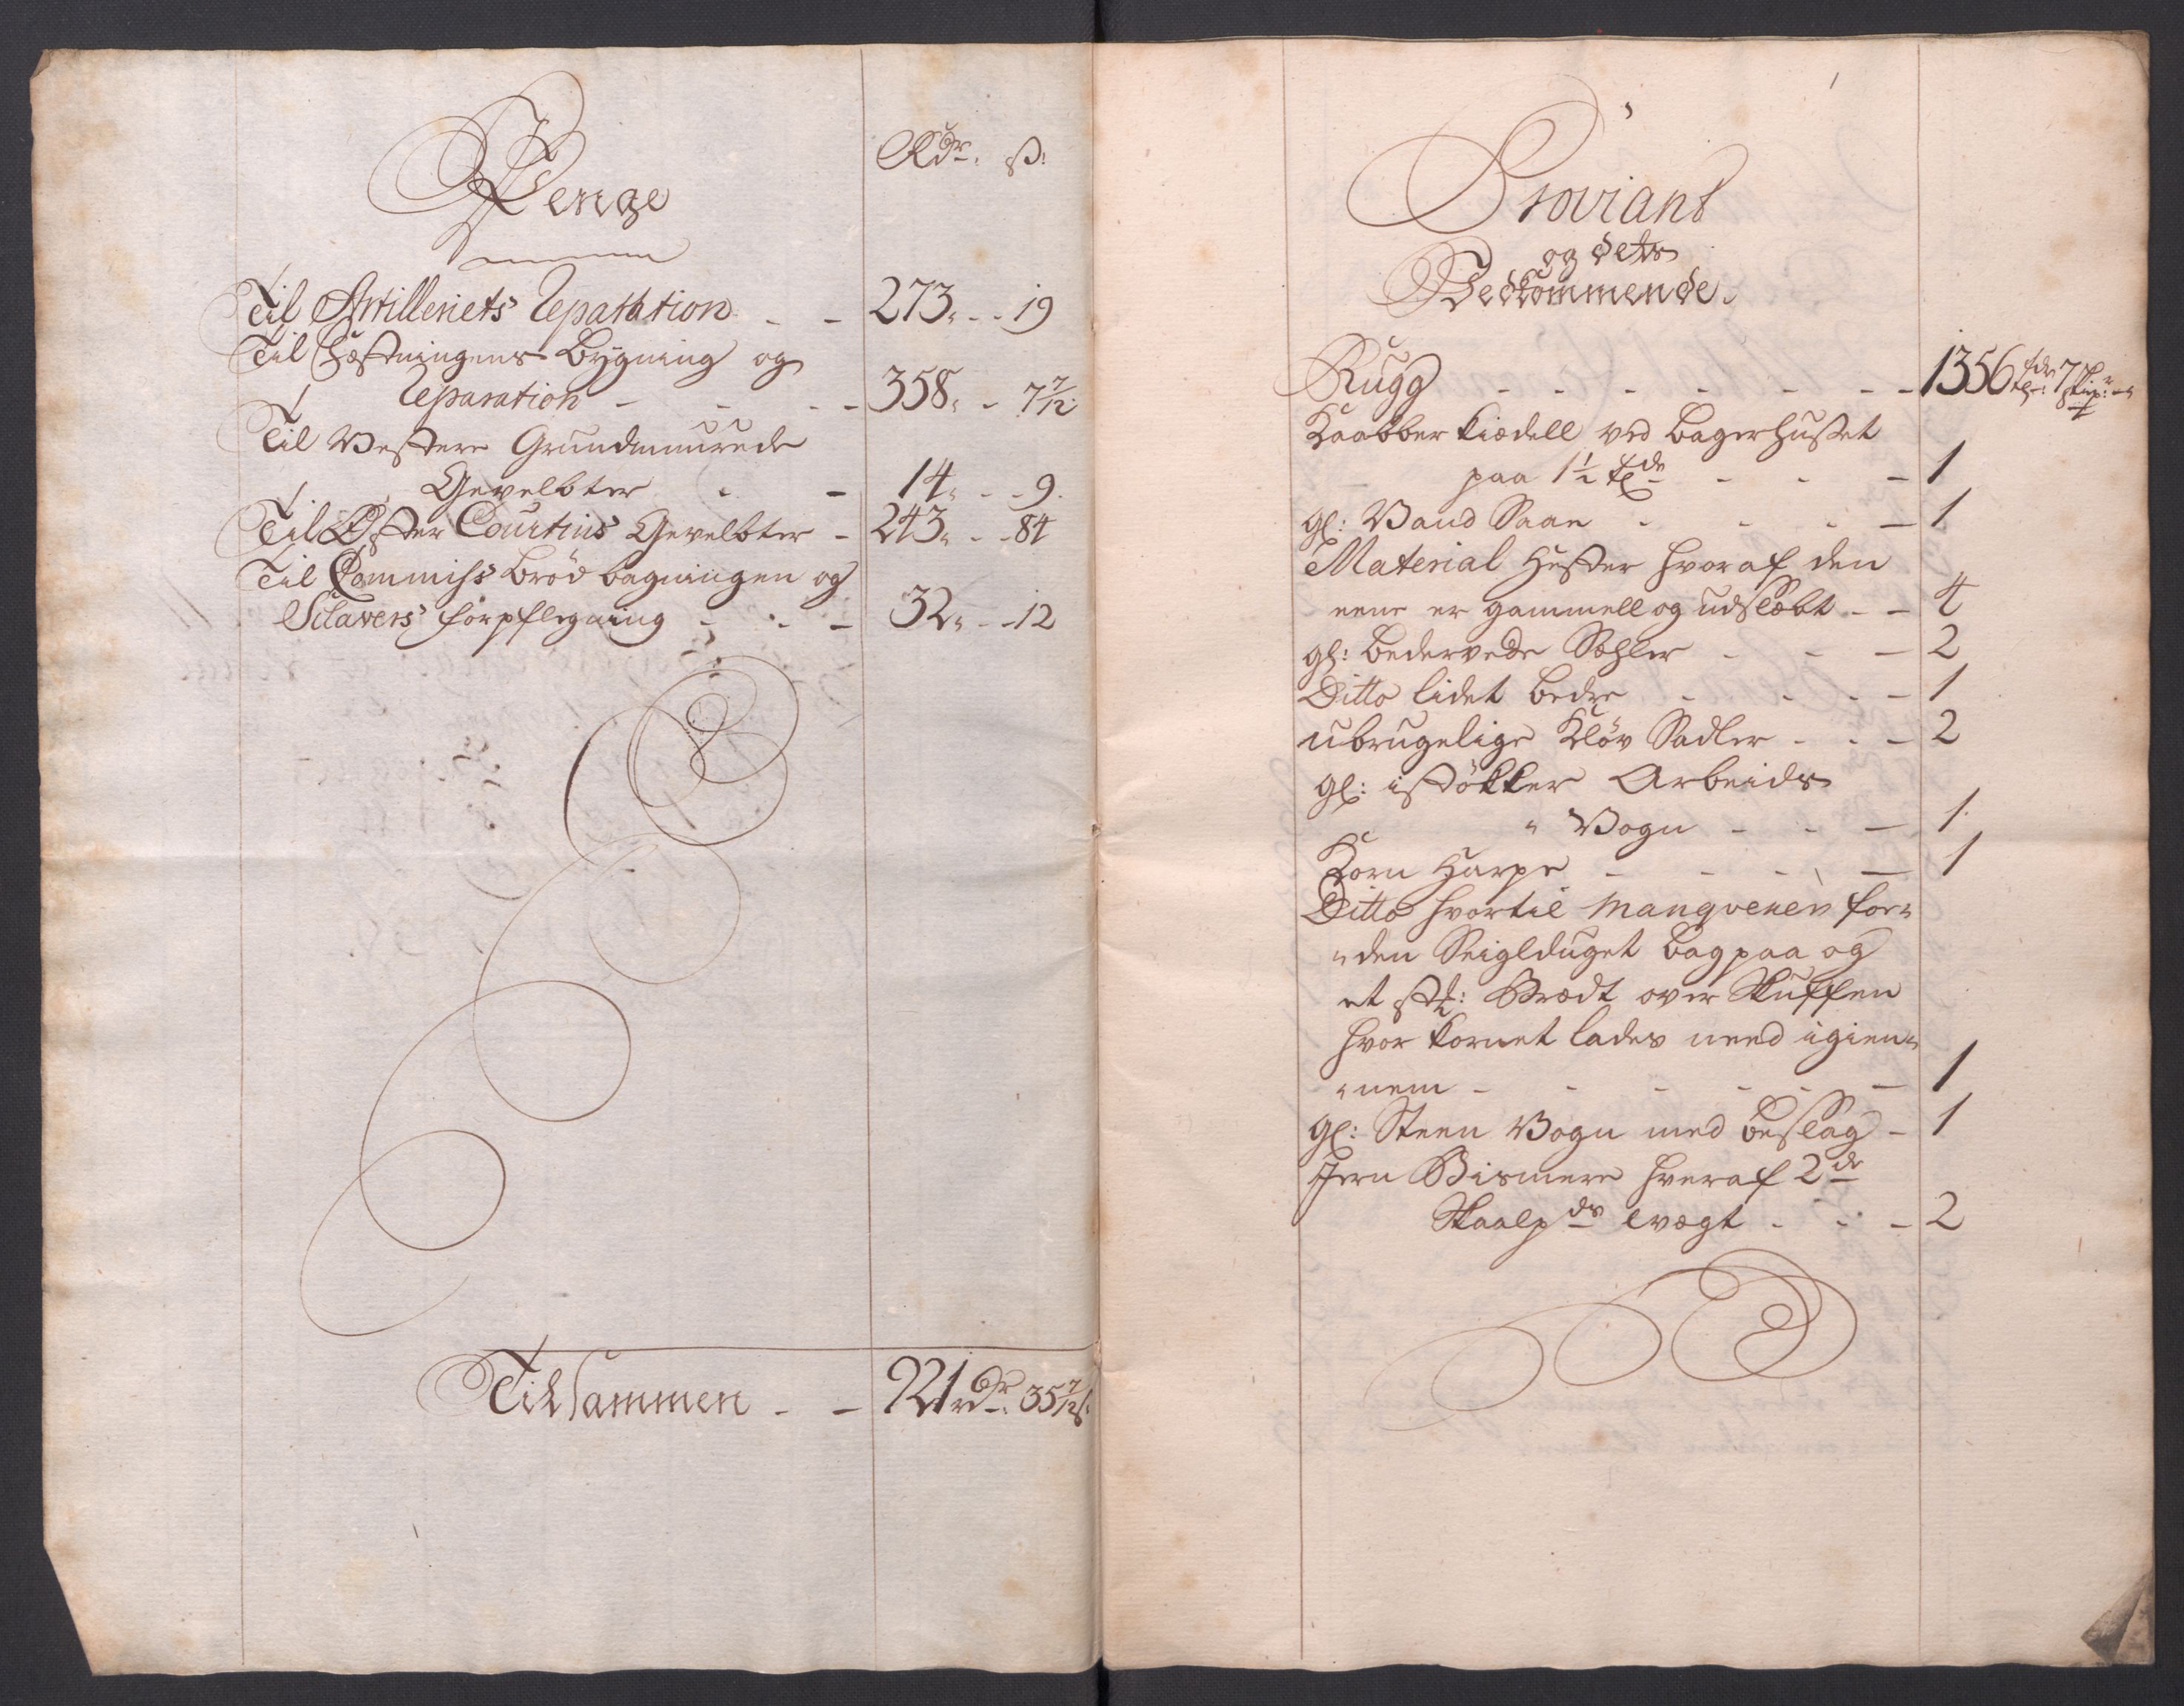 Penge
Rdr. ß:
Til Artilleriets Reparation - - 273 " - - 19
Til Fæstningens Bÿgning og
Reparation - - - - 358 " - 7 7/12
Til Vestere Grundmuurede
Gevelbter - - 14 " - - 9.
Til Øster Courtins Gevelbter - 243 " - - 84
Til Commiss Brød bagningen og
Sclavers forpflegning - - - 32 " - - 12
Tilsammen - - 921 rdr: 35 7/12 ß:
Proviant
og dets
Vedkommende.
Rugg - - - - - - - 1356 tdr: 7 skip:
Kaabber Kiædell ved Bagerhuset
paa 1½ tde - - - 1
gl: Vand Saae - - - - 1
Material Hester hvoraf den
eene er gammell og udslæbt - - 4
gl: bedervede Sehler - - - 2
Ditto lidet bedre - - - - 1
ubrugelige Kløv Sadler - - - 2
gl: istökker Arbeids
" Vogn - - - 1.
Korn Harpe - - - - 1
Ditto hvortil manqverer for"
"den Seigldüget bag paa og
et st: Brædt over Skuffen
hvor Kornet lades need igien"
"nem - - - - - - 1
gl: Steen Vogn med beslag - 1
Jern Bismere hveraf 2de
Skaalpds Wægt - - - 2